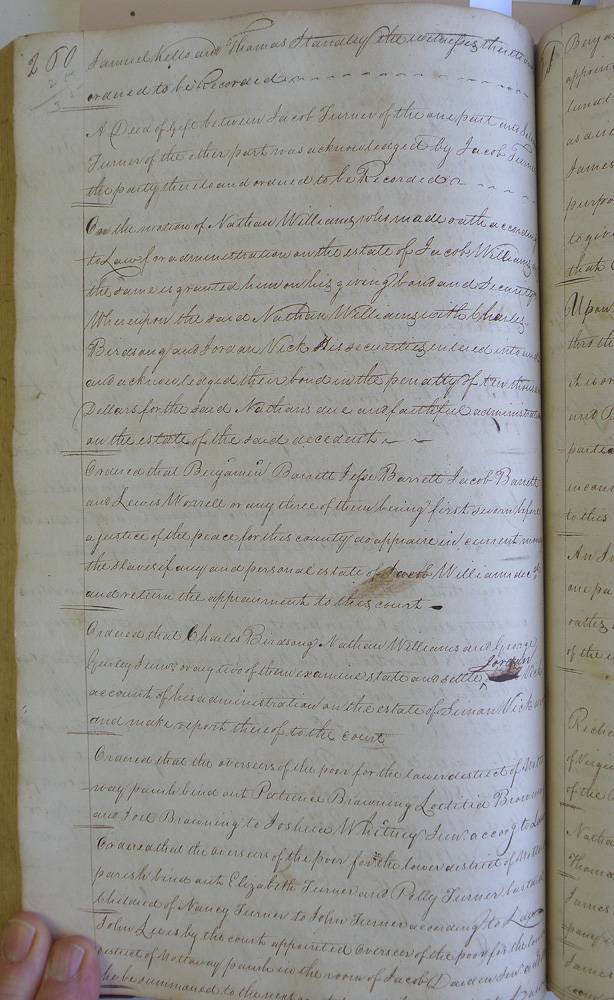 260
Samuel Kello and Thomas Standley the witnesses thereto and
ordered to be Recorded
A Deed of Gift between Jacob Turner of the one part and
Turner of the other part was acknowledged by Jacob Turner
the party thereto and ordered to be Recorded
On the motion of Nathan Williams who made oath according
to Law for administration on the estate of Jacob Williams
the same is granted him on his giving bond and Security
Whereupon the said Nathan Williams with Charles
Birdsong and Jordan Vick His securities entered into and
and acknowledged their bond in the penalty of ten thousand
Dollars for the said Nathans due and faithful administration
on the estate of the said decedent
Ordered that Benjamin Barrett Jesse Barrett Jacob Barrett
and Lewis Worrell or any three of them being first sworn before
a justice of the peace for this county do appraise in current money
the slaves if any and personal estate of Jacob William decd
and return the appraisment to this court
Ordered that Charles Birdsong Nathan Williams and George
Gurley Junr. or any two of them examine state and settle Jordan Vicks
account of his administration on the estate of Simon Vick
and make report thereof to the court
Ordered that the overseers of the poor for the lower district of Notto
way parish bind out Patience Browning Loetitia Browning
and Joel Browning to Joshua Whitney Junr. accog to Law
Ordered that the overseers of the poor for the lower district of Nottoway
parish bind out Elizabeth Turner and Polly Turner bastard
Children of Nancy Turner to John Turner according to Law
John Lewis by the court appointed Overseer of the poor for the lower
district of Nottoway parish in the room of Jacob Darden Junr.
he be summoned to the next